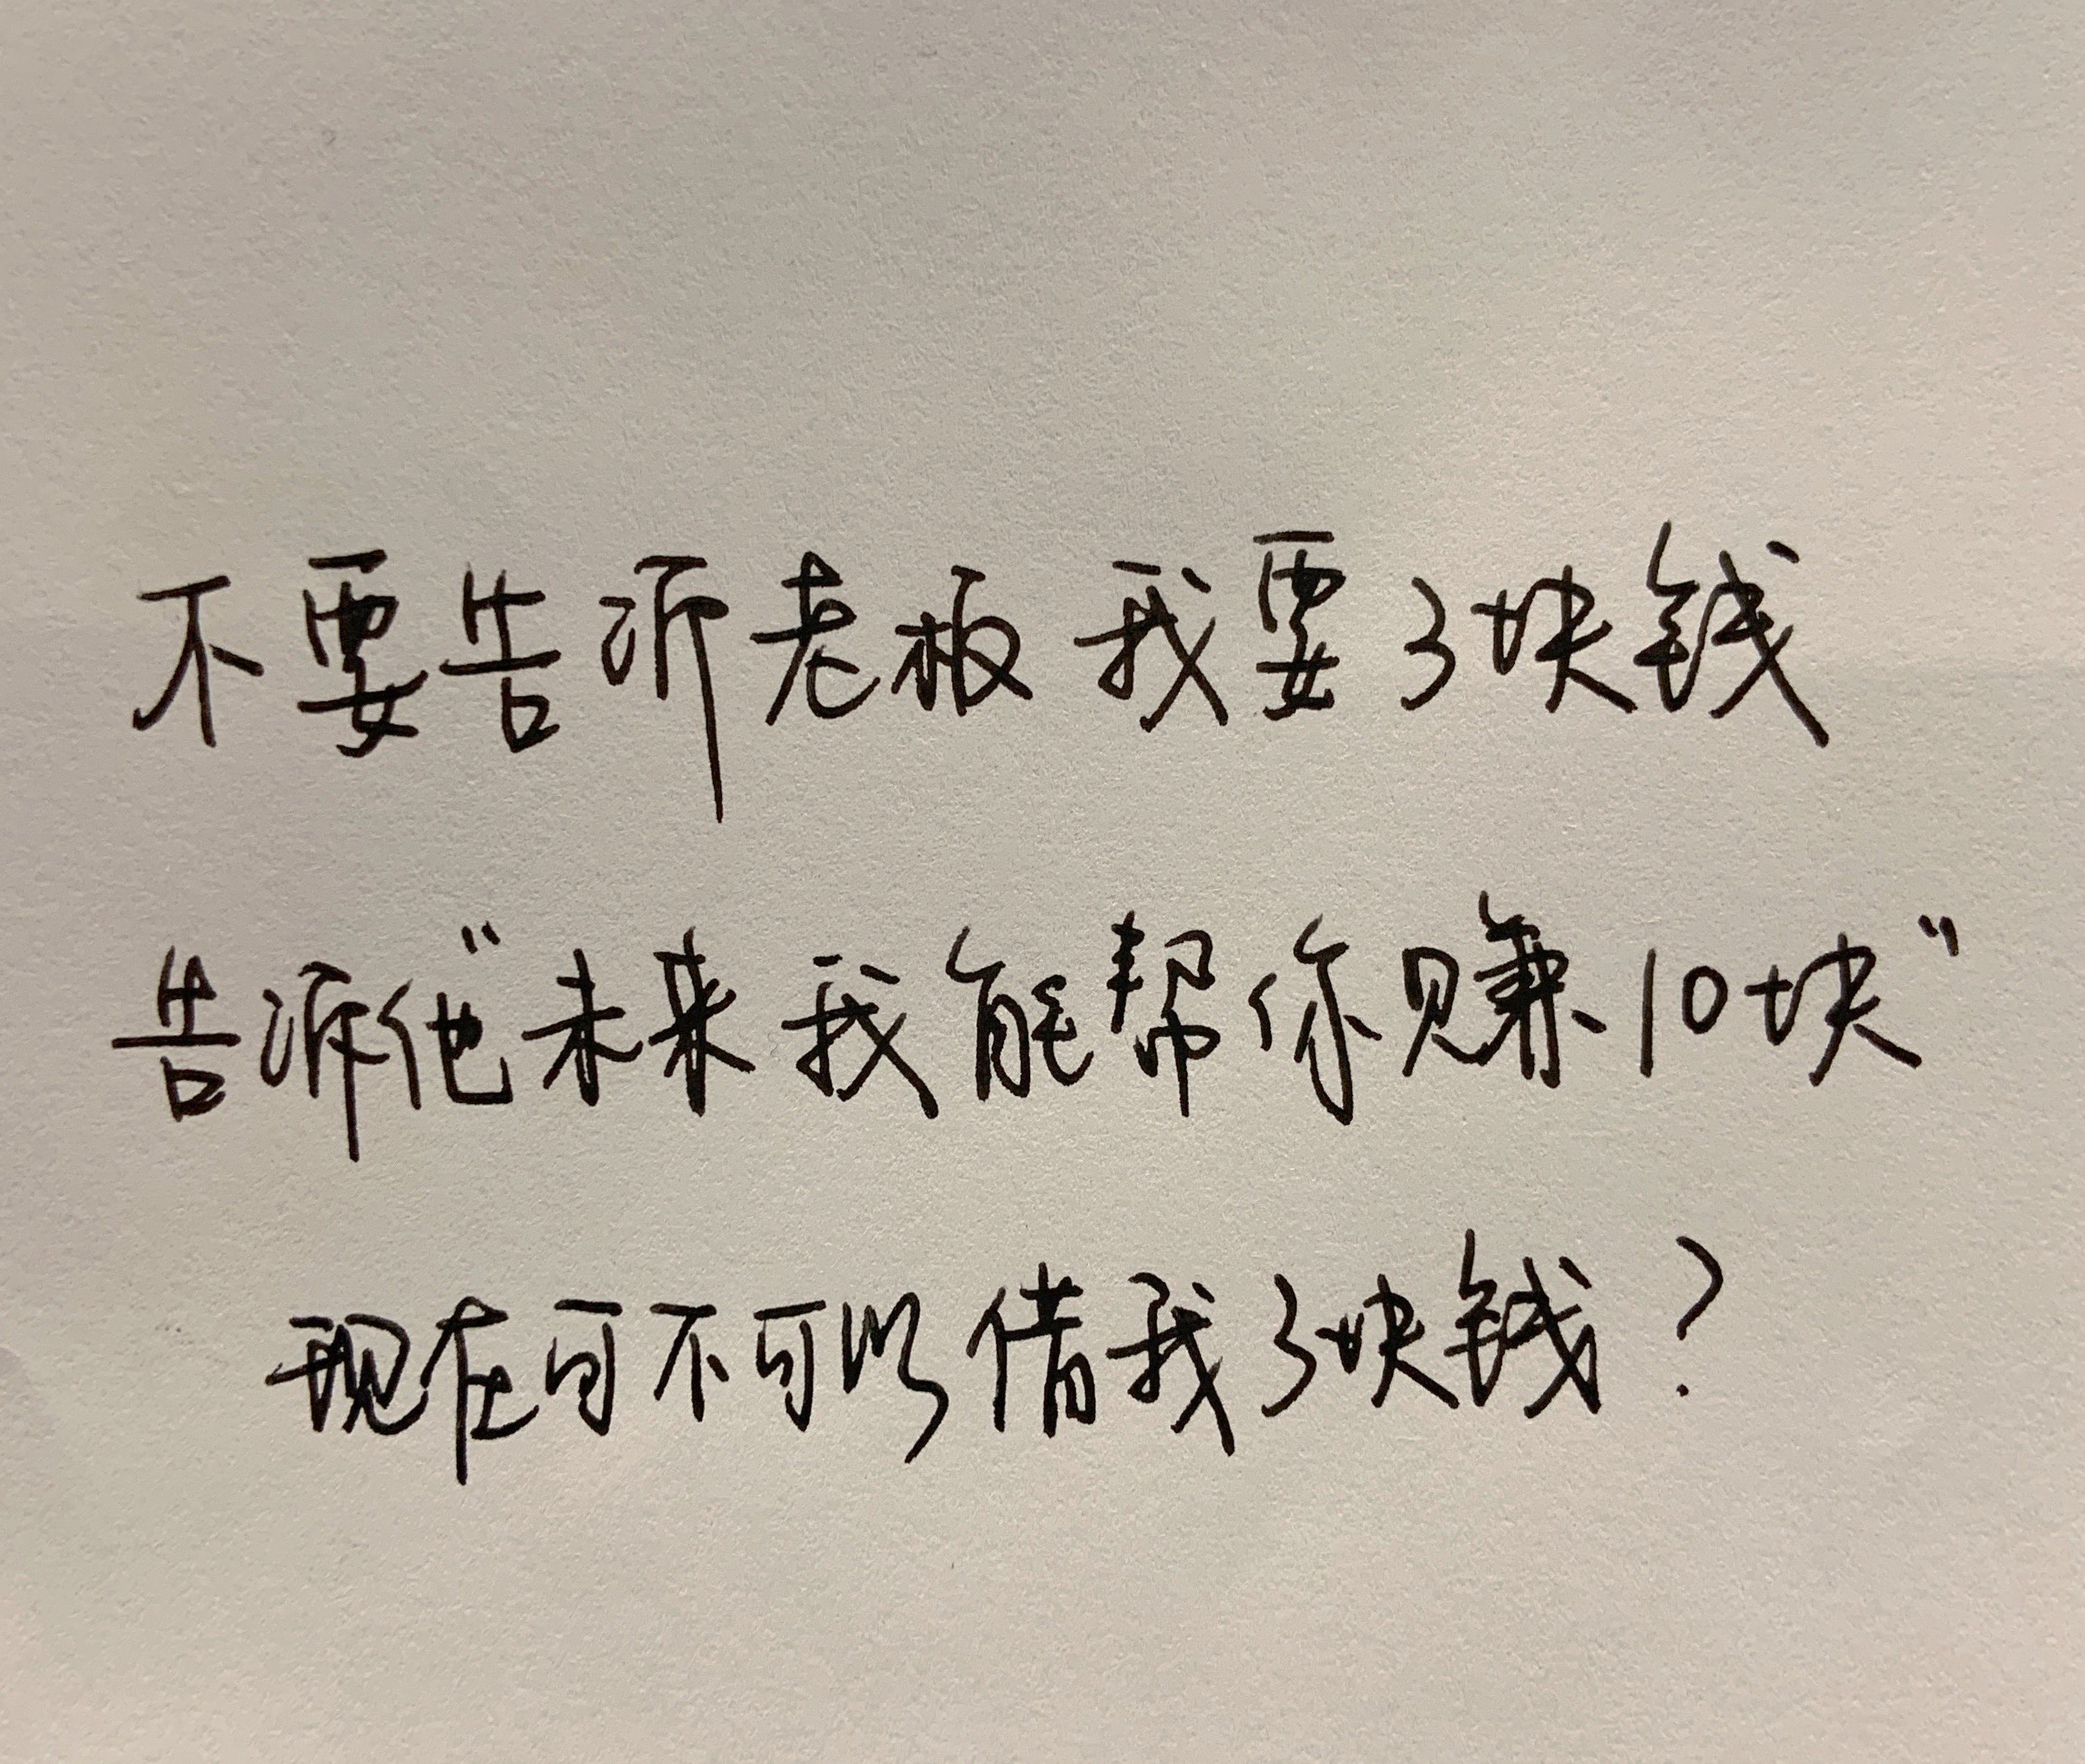 不要告诉老板我要3块钱
告诉他“未来我能帮你赚10块”
现在可不可以借我3块钱？